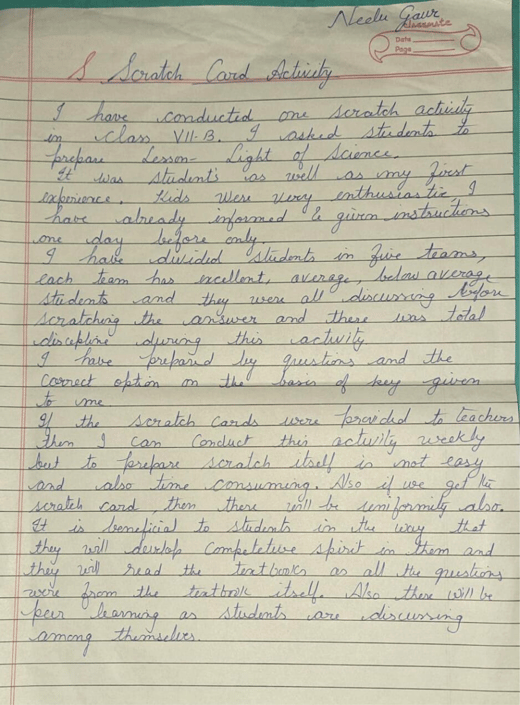 Neelu Gaur
classmate
Date
Page
S Scratch Card Activity
I have conducted one scratch activity
in Class VII-B. I asked students to
prepare Lesson- Light of Science.
It was student's as well as my first
experience. Kids were very enthusiastic, I
have already informed & given instructions
one day before only.
I have divided students in five teams,
each team has excellent, average, below average
students and they were all discussing before
scratching the answer and there was total
discipline during this activity
I have prepared by questions and the
correct option on the basis of key given
to me
If the scratch cards were provided to teachers
then I can conduct this activity weekly
but to prepare scratch itself is not easy
and also time consuming. Also if we get the
scratch card, then there will be uniformity also.
It is beneficial to students in the way that
they will develop competetive spirit in them and
they will read the textbooks as all the questions
were from the textbook itself. Also there will be
peer learning as students are discussing
among themselves.